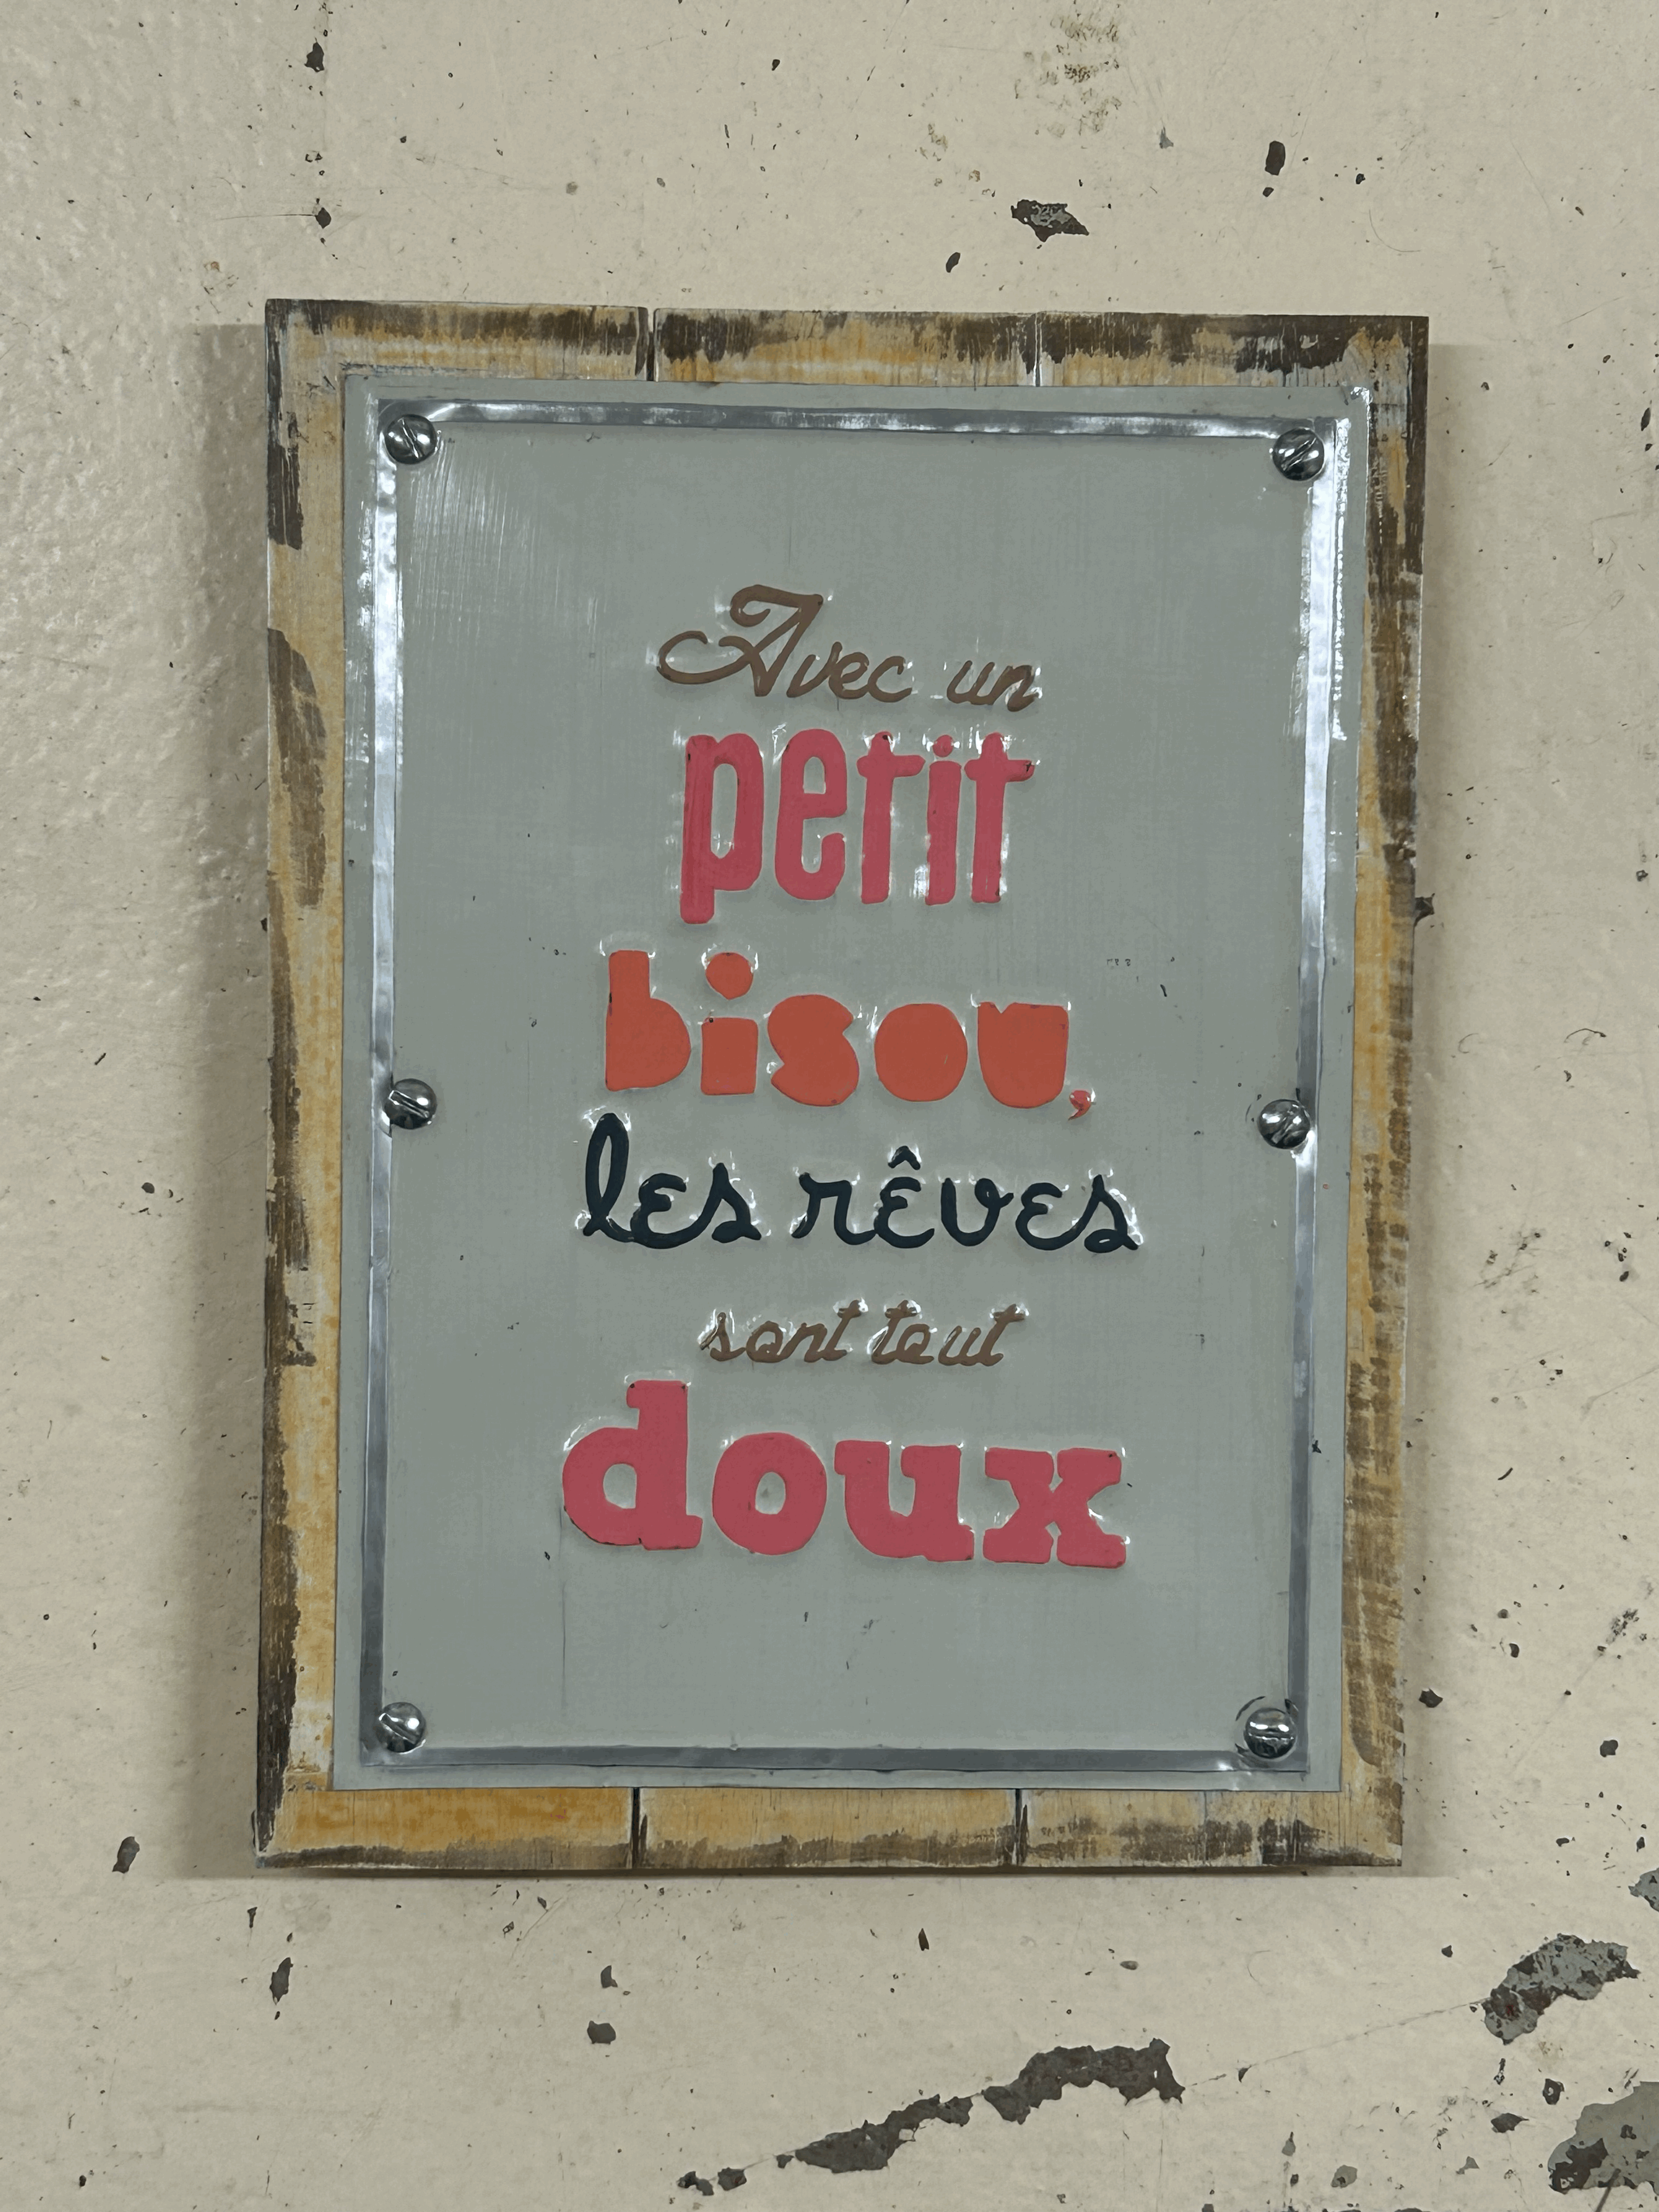 Avec un
petit
bisou,
les rêves
sont tout
doux